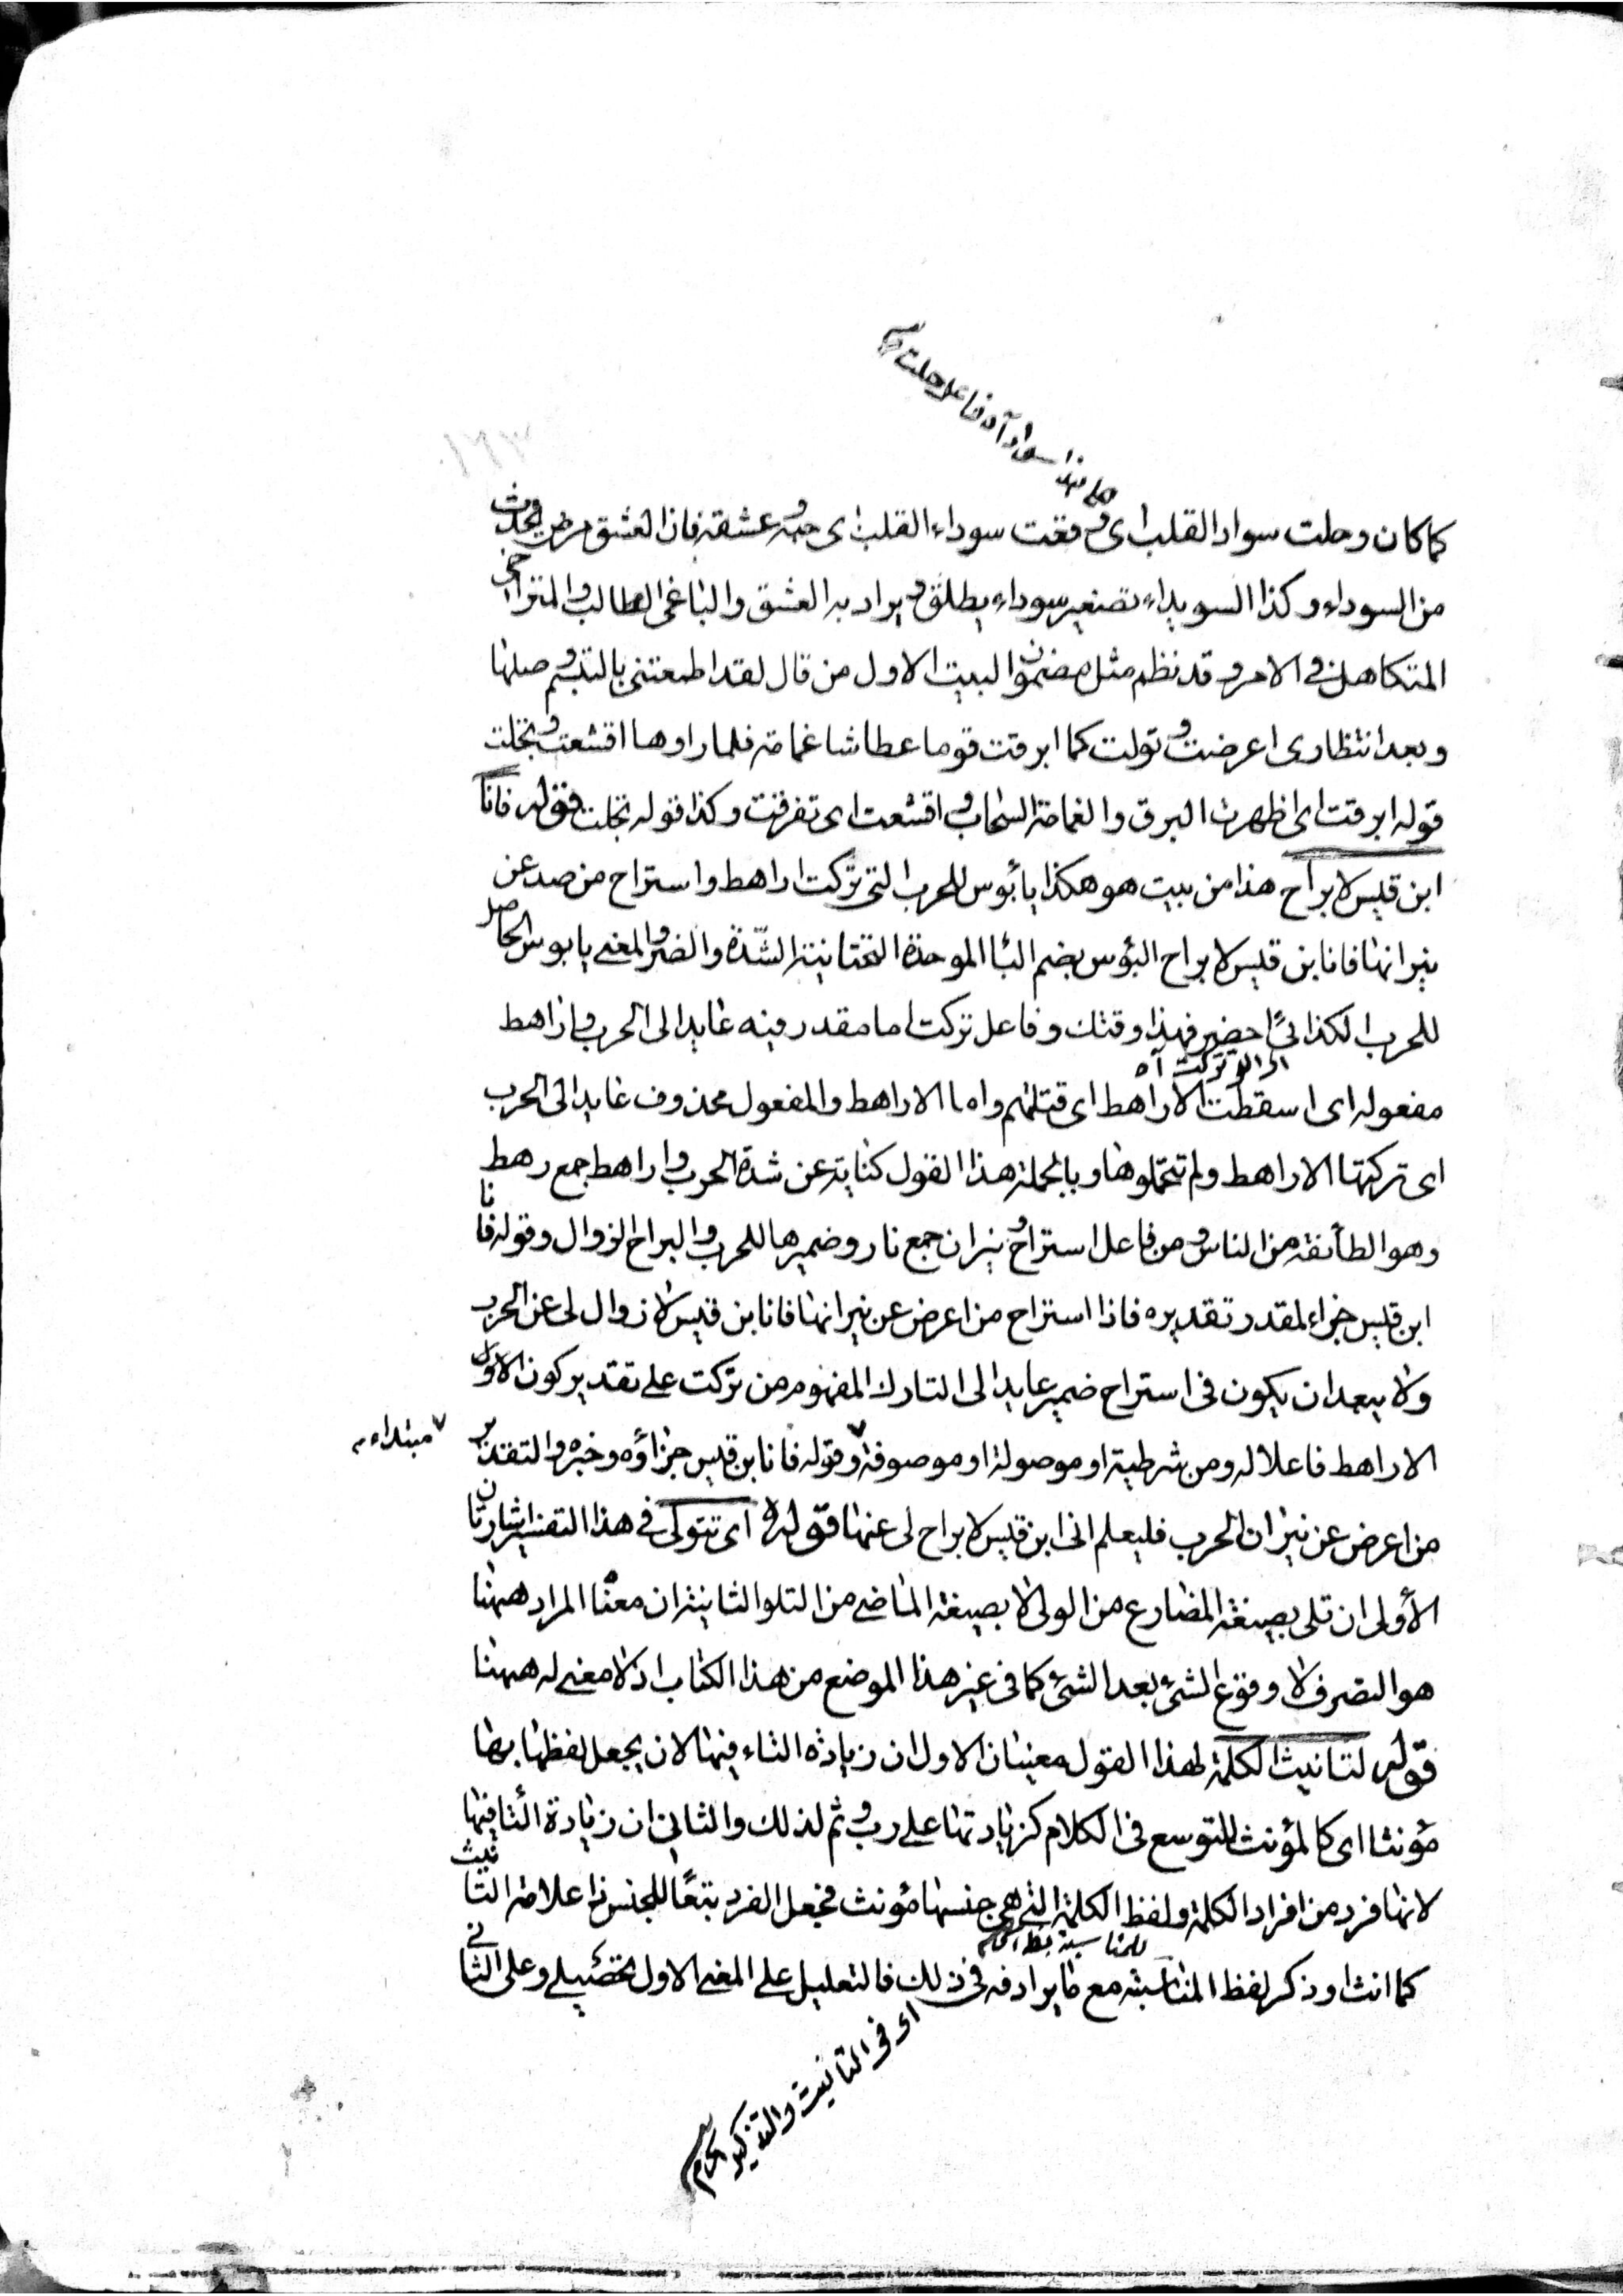 كما كان وحلت سواد القلب اى وقعت سوداء القلب اى حبه وعشقه فان العشق مرض يحدث
من السوداء وكذا السويداء تصغير سوداء يطلق ويراد به العشق والباغى الطالب والمتراخى
المتكاهل فى الامر وقد نظم مثل مضمون البيت الاول من قال لقد اطمعتنى بالتبسم وصلها
وبعد انتظارى اعرضت وتولت كما ابرقت قوما عطاشا غمامة فلما راوها اقشعت وتجلت
قوله ابرقت اى اظهرت البرق والغمامة السحاب واقشعت اى تفرقت وكذا قوله تجلت قوله فانا
ابن قيس لا براح هذا من بيت هو هكذا يا بؤس للحرب التى تركت اراهط واستراح من صد عن
نيرانها فانا ابن قيس لا براح البؤس بضم البا الموحدة التحتانية الشدة والضر والمعنى يا بوس الحاصل
للحرب الكذائى احضر فهذا وقتك وفاعل تركت اما مقدر فيه عايد الى الحرب واراهط
اى التى تركت آه
مفعوله اى اسقطت الاراهط اى قتلتهم واما الاراهط والمفعول محذوف عايد الى الحرب
اى تركتها الاراهط ولم تتحملوها وبالجملة هذا القول كناية عن شدة الحرب واراهط جمع رهط
وهو الطائفة من الناس ومن فاعل استراح ونيران جمع نار وضميرها للحرب والبراح الزوال وقوله فانا
ابن قيس جزاء لمقدر تقديره فاذا استراح من اعرض عن نيرانها فانا ابن قيس لا زوال لى عن الحرب
ولا يبعد ان يكون فى استراح ضمير عايد الى التارك المفهوم من تركت على تقدير كون الاول
الاراهط فاعلا له ومن شرطية او موصولة او موصوفة وقوله فانا ابن قيس جزاؤه وخبره والتقدير
مبتداء
من اعرض عن نيران الحرب فليعلم انى ابن قيس لا براح لى عنها قوله اى تتولى فى هذا التفسير اشارتان
الأولى ان تلى بصيغة المضارع من الولى لا بصيغة الماضى من التلو الثانية ان معنا المراد ههنا
هو التصرف لا وقوع الشئ بعد الشئ كما فى غير هذا الموضع من هذا الكتاب اذ لا معنى له ههنا
قوله لتانيث الكلمة لهذا القول معنيان الاول ان زيادة التاء فيها لان يجعل لفظها بها
مؤنثا اى كالمؤنث للتوسع فى الكلام كزيادتها على رب وثم لذلك والثانى ان زيادة التا فيها
لانها فرد من افراد الكلمة ولفظ الكلمة التى هى جنسها مؤنث فجعل الفرد تبعًا للجنس ذا علامة التانيث
كما انث وذكر لفظ المناسبة مع ما يرادفه فى ذلك فالتعليل على المعنى الاول تحصيلى وعلى الثانى
اى فى التانيث والتذكير